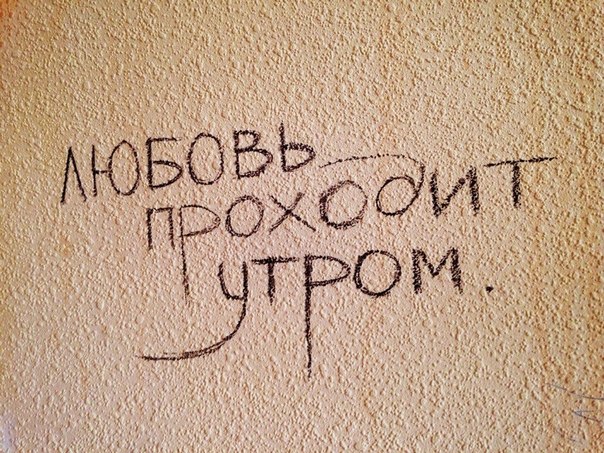 ЛЮБОВЬ
ПРОХОДИТ
УТРОМ.